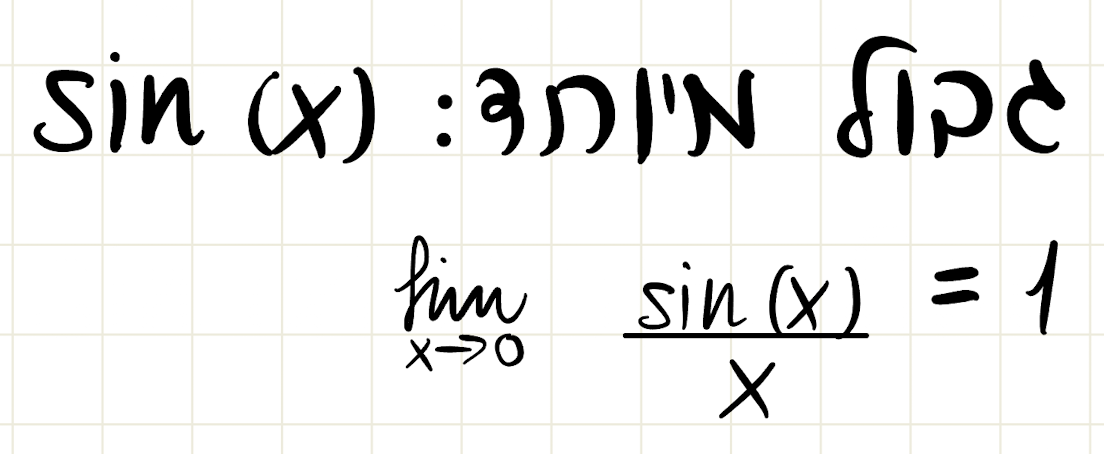 גבול מיוחד: sin (x)
lim x→0 sin(x)/x = 1